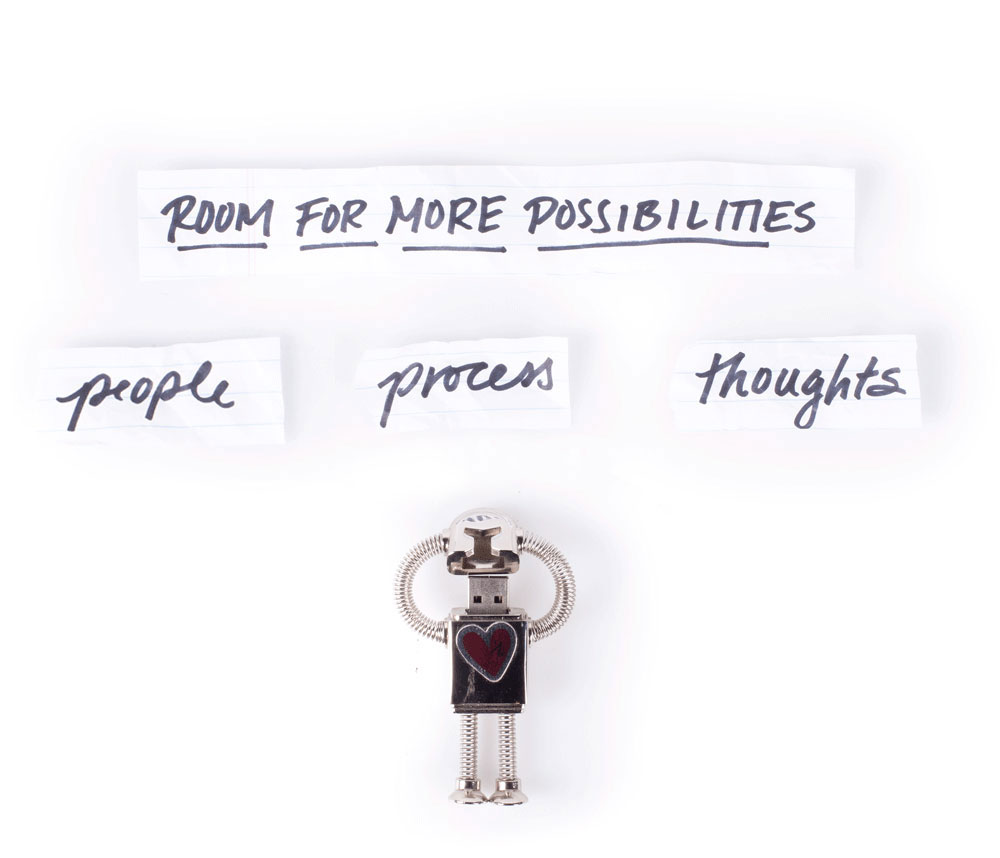 ROOM FOR MORE POSSIBILITIES
people process thoughts